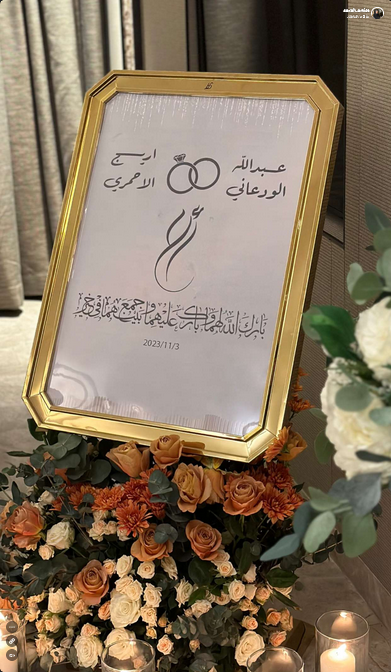 عبدالله اريج
الودعاني الاحمري
بارك الله لهما وبارك عليهما وجمع بينهما في خير
2023/11/3